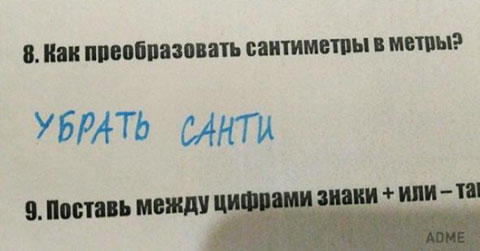 8. Как преобразовать сантиметры в метры?
УБРАТЬ САНТИ
9. Поставь между цифрами знаки + или –
ADME